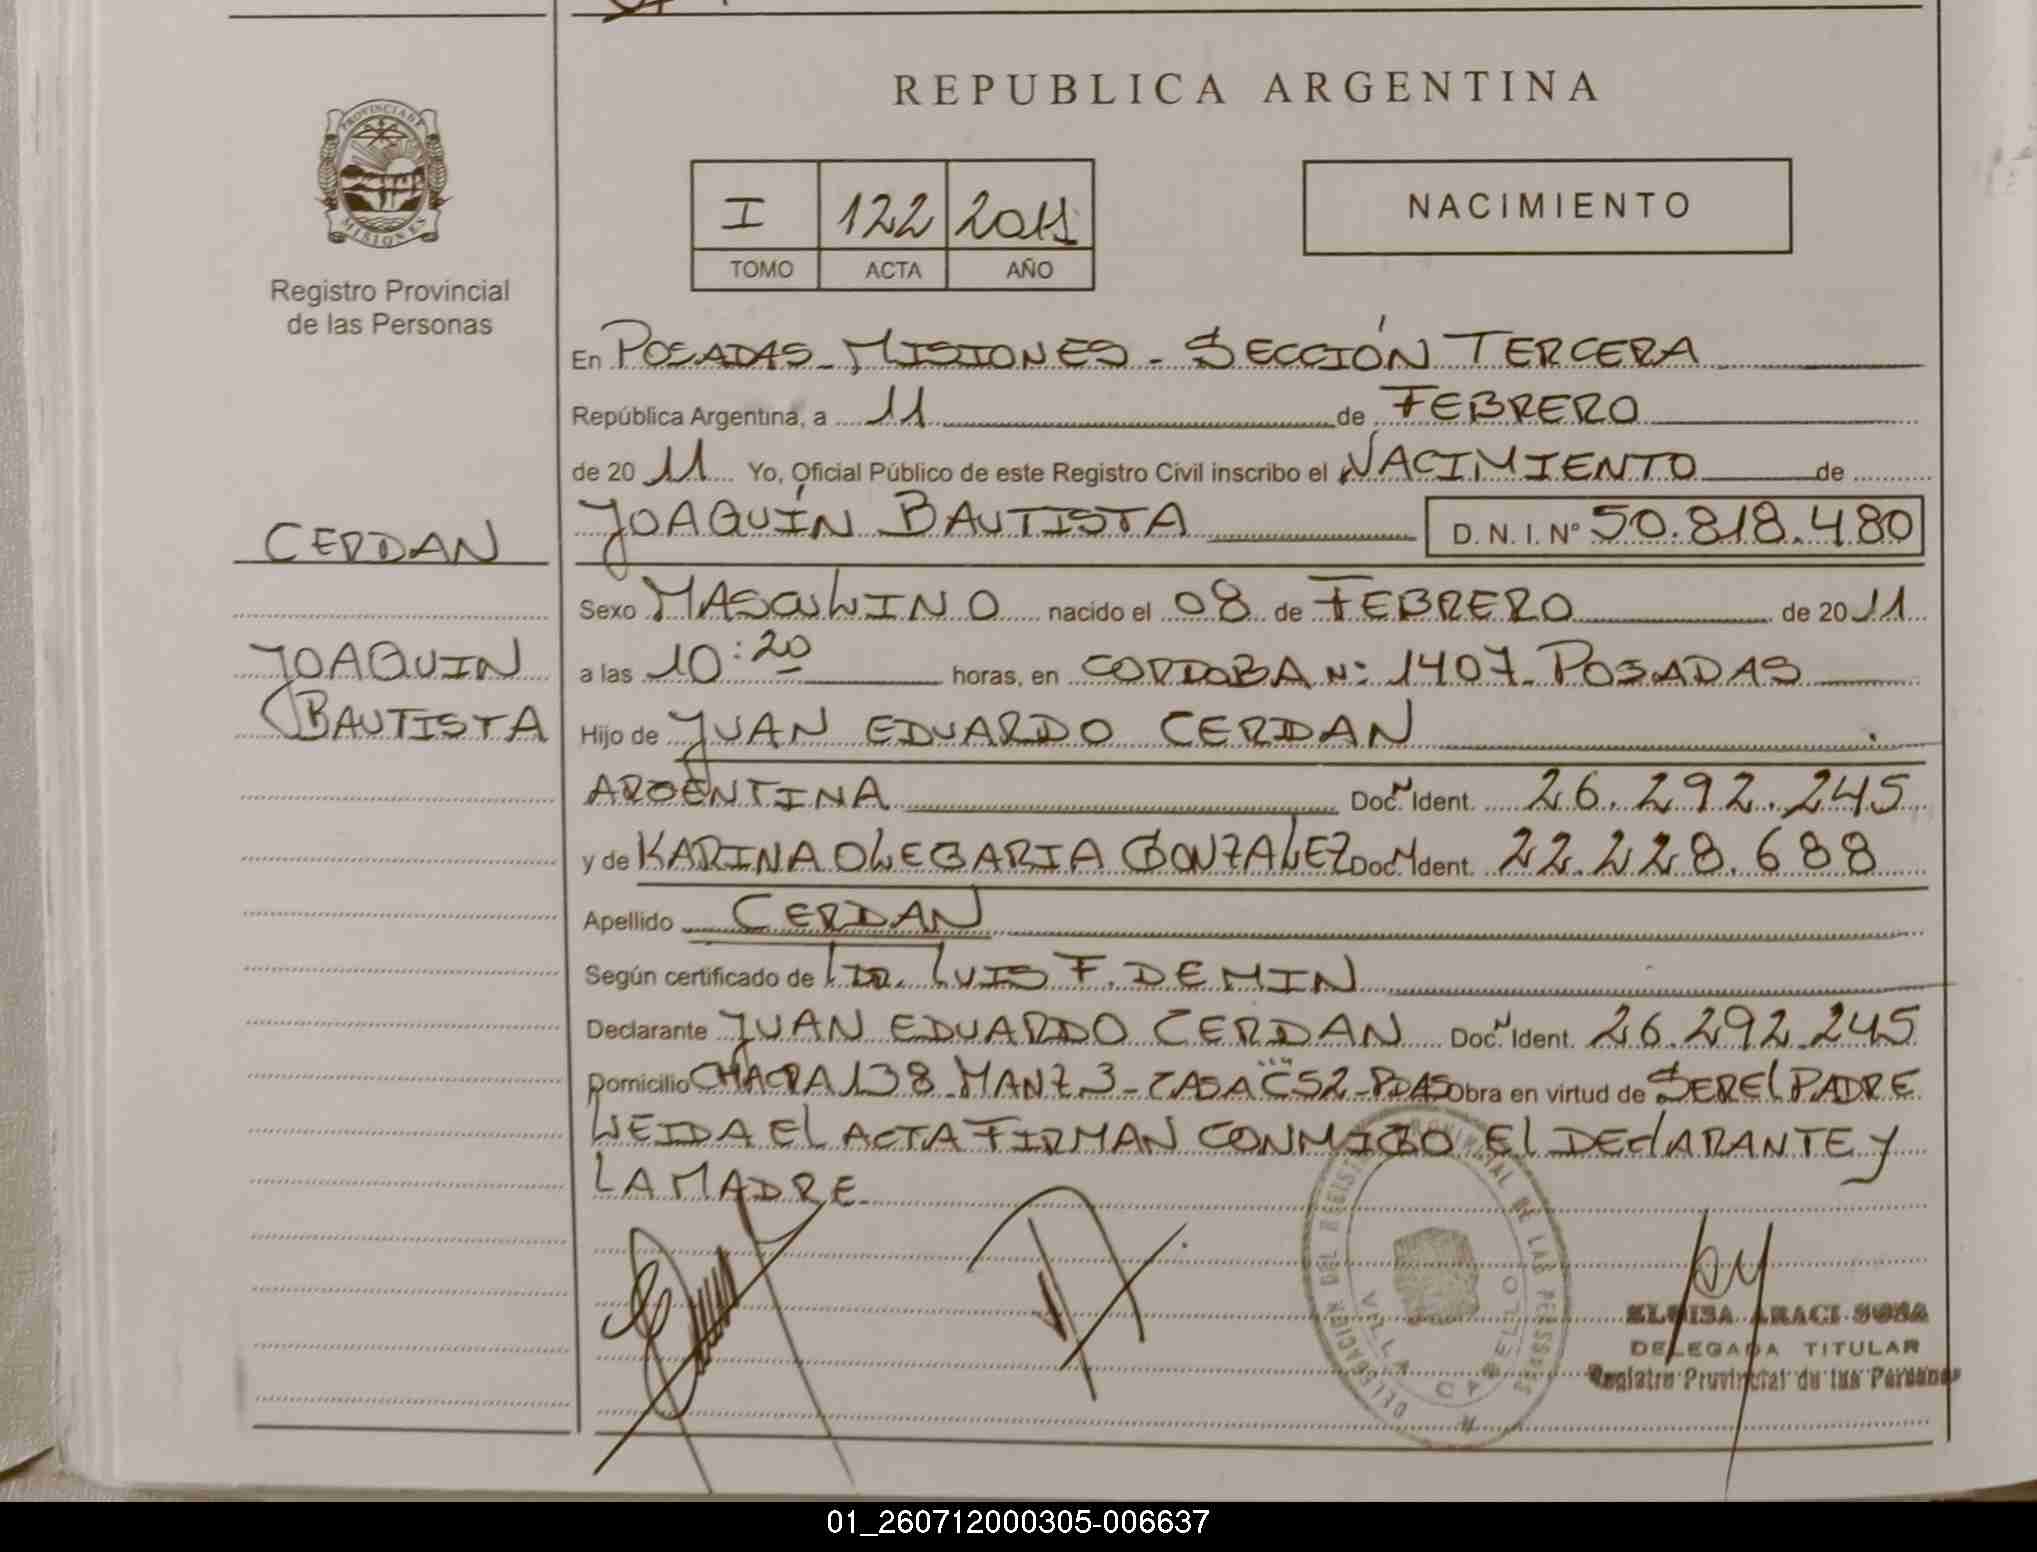 REPUBLICA ARGENTINA
PROVINCIA DE
MISIONES
Registro Provincial
de las Personas
I 122 2011
TOMO ACTA AÑO
NACIMIENTO
En POSADAS - MISIONES - SECCIÓN TERCERA
República Argentina, a 11 de FEBRERO
de 20 11 Yo, Oficial Público de este Registro Civil inscribo el NACIMIENTO de
CERDAN
JOAQUÍN BAUTISTA D. N. I. Nº 50.818.480
Sexo MASCULINO nacido el 08 de FEBRERO de 20 11
JOAQUIN
BAUTISTA
a las 10:20 horas, en CORDOBA Nº 1407 - POSADAS
Hijo de JUAN EDUARDO CERDAN
ARGENTINA Doc. Ident. 26.292.245
y de KARINA OLEGARIA GONZALEZ Doc. Ident. 22.228.688
Apellido CERDAN
Según certificado de DR. LUIS F. DEMIN
Declarante JUAN EDUARDO CERDAN Doc. Ident. 26.292.245
Domicilio CHACRA 138 - MANZ 3 - CASA "C" 52 - PDAS Obra en virtud de SER EL PADRE
LEIDA EL ACTA FIRMAN CONMIGO EL DECLARANTE y
LA MADRE
DELEGACION DEL REGISTRO PROVINCIAL DE LAS PERSONAS
VILLA CABELLO
ELOISA ARACI SOSA
DELEGADA TITULAR
Registro Provincial de las Personas
01_260712000305-006637